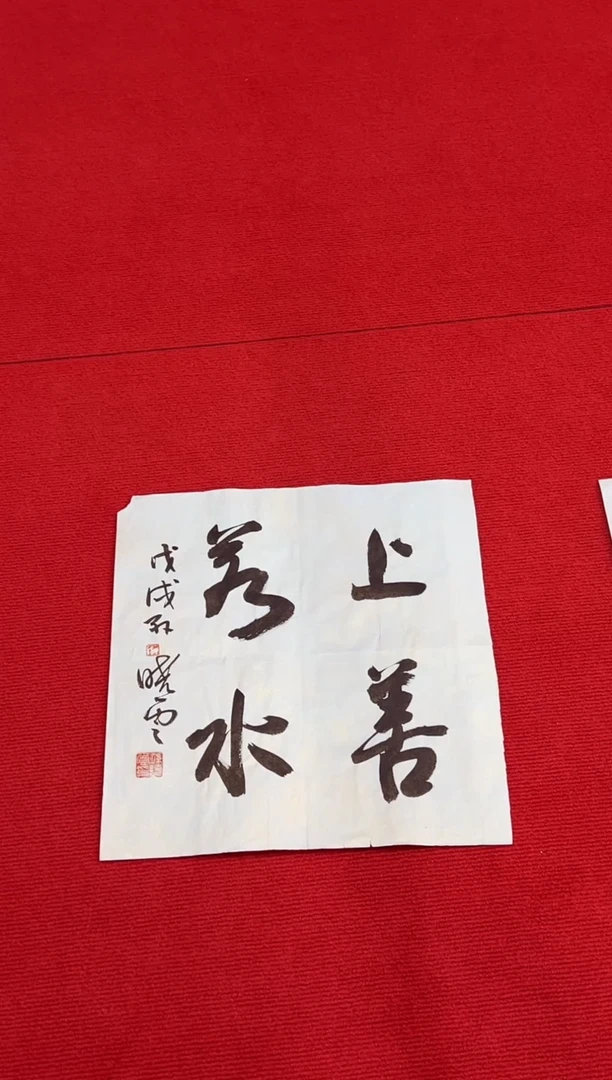 上善
若水
戊戌秋
晓云